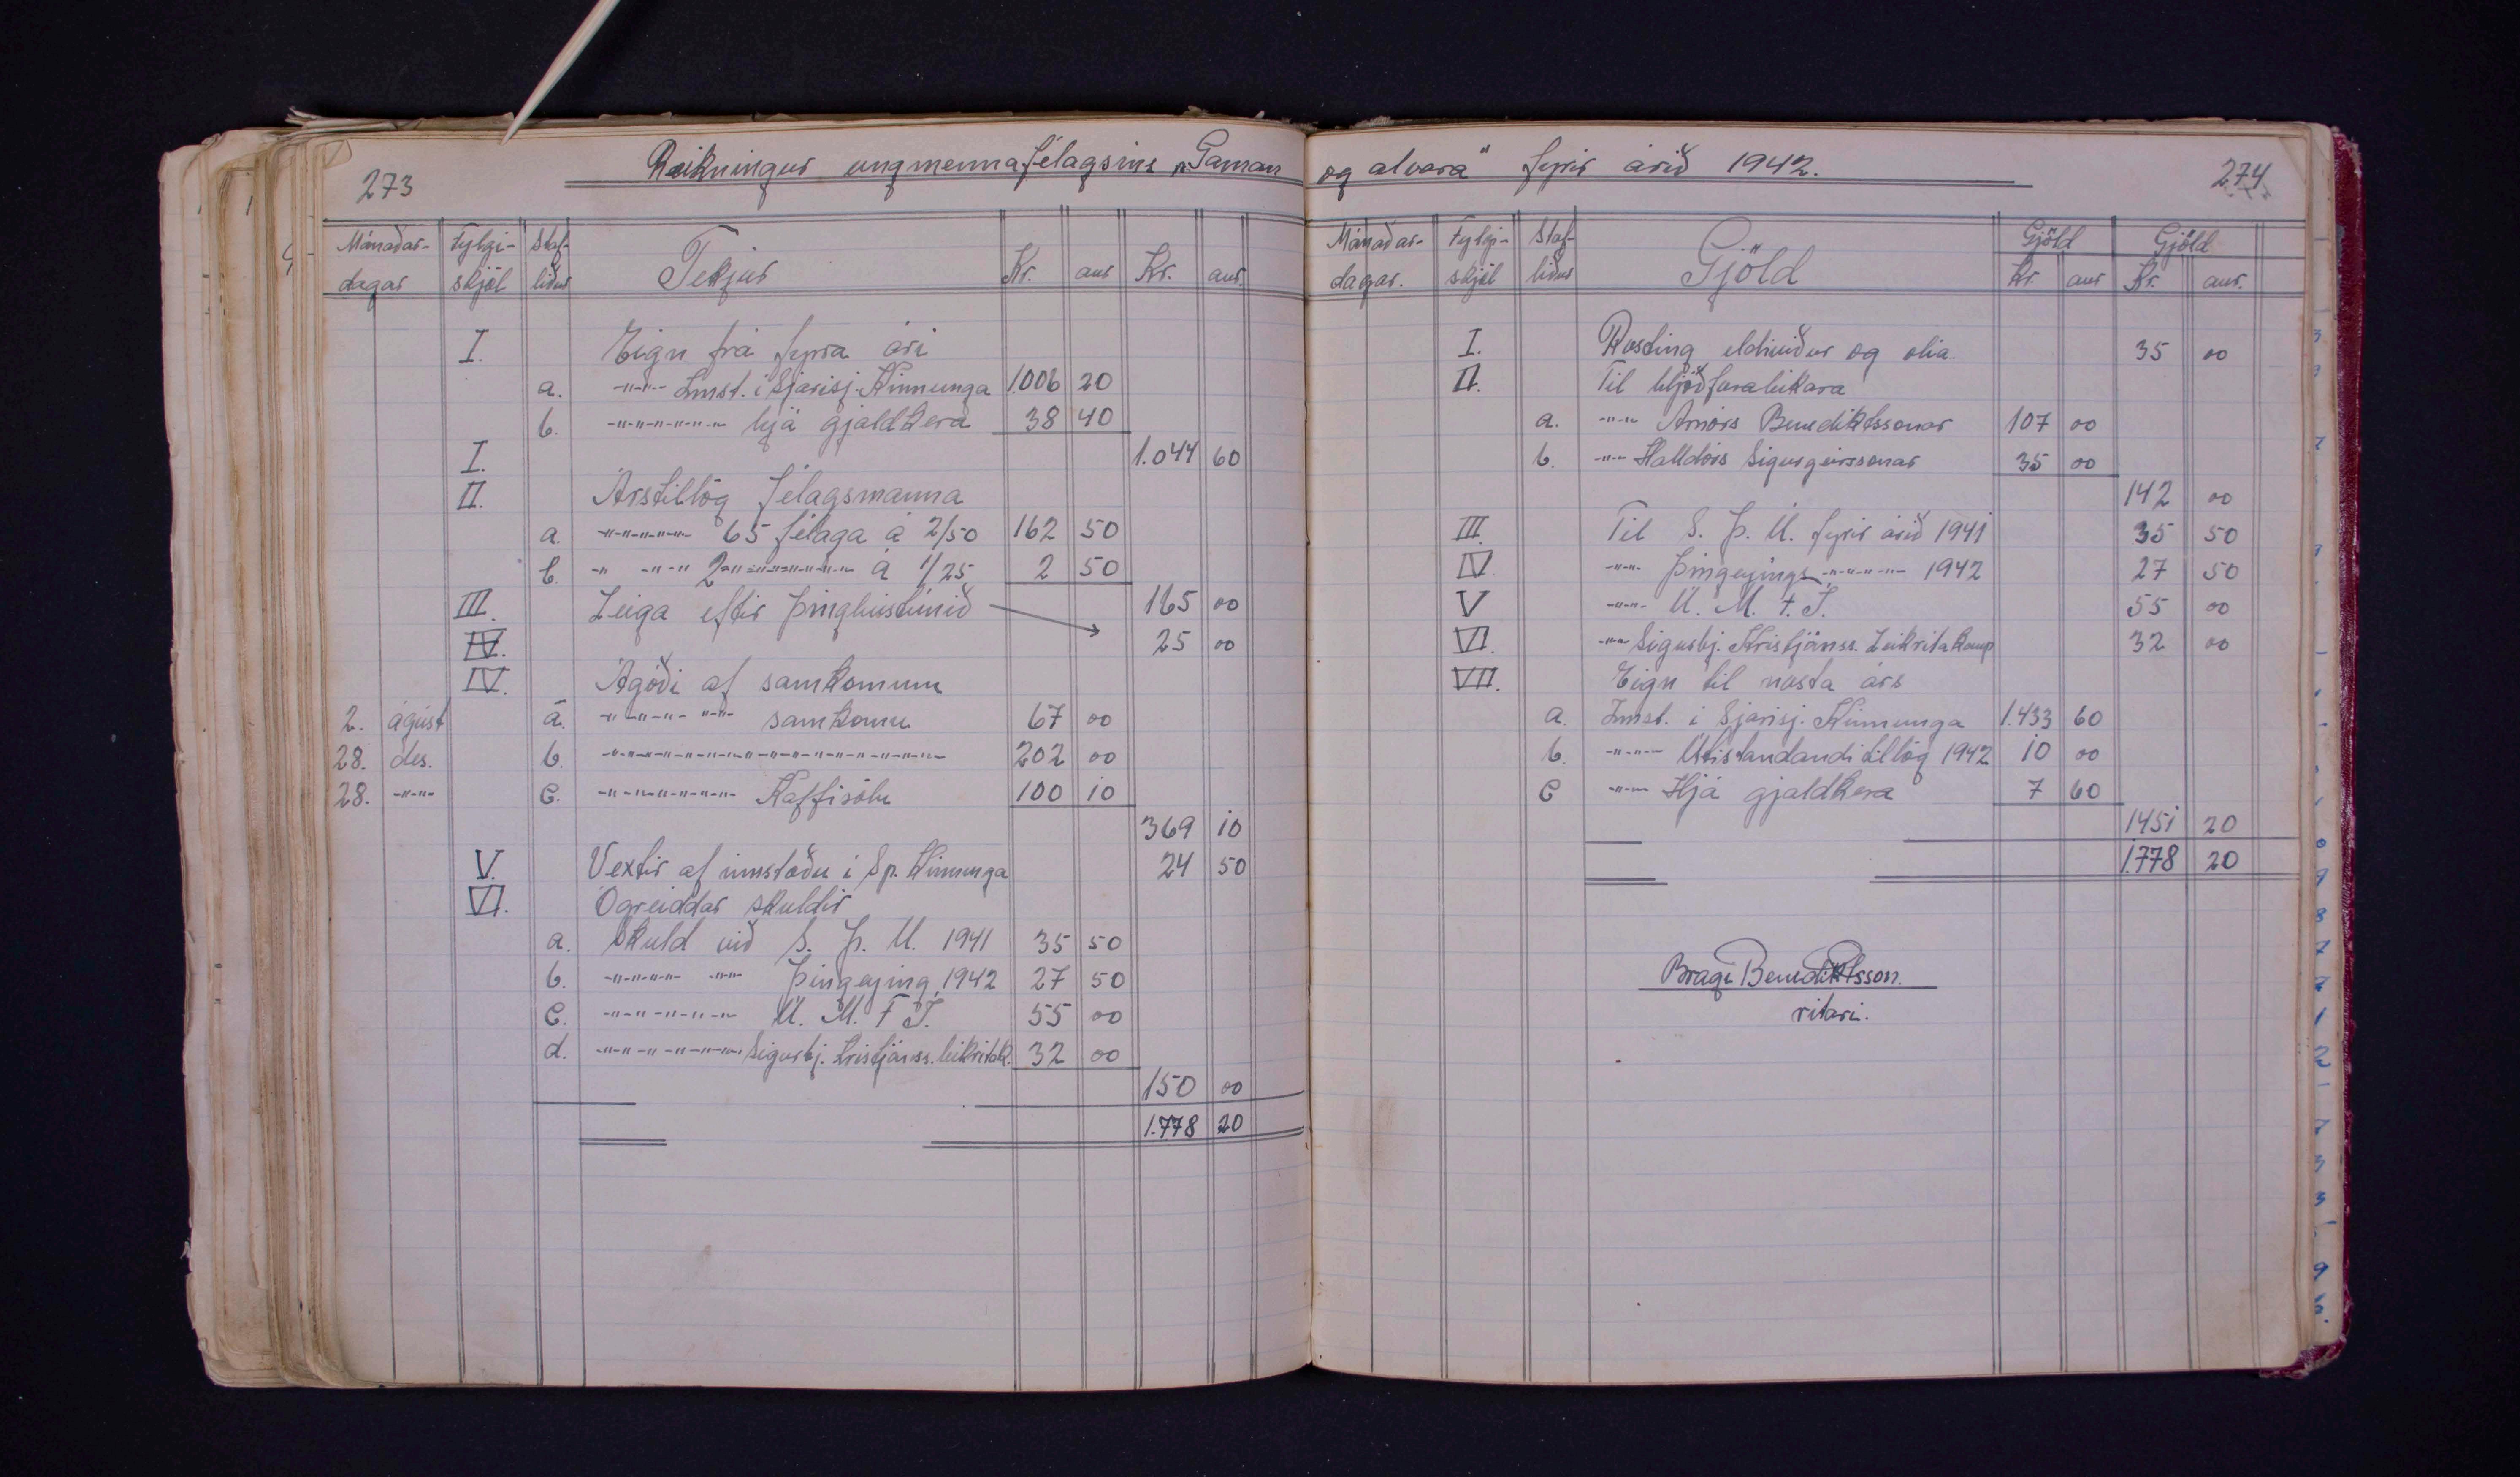 273
Reikningur ungmennafélagsins „Gaman
Mánaðar- Fylgi- Staf-
dagar skjöl liður Tekjur Kr. aur Kr. aur.
I. Eign frá fyrra ári
a. -"-"- Innst. í Sparisj. Kinnunga 1.006 20
b. -"-"-"-"- hjá gjaldkera 38 40
I. 1.044 60
II. Árstillög félagsmanna
a. -"-"-"-"- 65 félaga á 2/50 162 50
b. -"- -"-"- 2 -"-"-"-"-"- á 1/25 2 50
III. Leiga eftir þinghústúnið 165 00
IV. 25 00
IV. Ágóði af samkomum
2. ágúst a. -"-"-"- -"- samkomu 67 00
28. des. b. -"-"-"-"-"-"-"-"-"-"-"-"- 202 00
28. -"-"- c. -"-"-"-"-"- Kaffisölu 100 10
369 10
V. Vextir af innstæðu í Sp. Kinnunga 24 50
VI. Ógreiddar skuldir
a. Skuld við S. Þ. U. 1941 35 50
b. -"-"-"- -"- Þingeying 1942 27 50
c. -"-"-"-"-"- U. M. F Í. 55 00
d. -"-"-"-"-"- Sigurbj. Kristjánss. leikritak. 32 00
150 00
1.778 20
og alvara" fyrir árið 1942.
274
Mánaðar- Fylgi- Staf- Gjöld Gjöld
dagar. skjöl liður Gjöld Kr. aur Kr. aur.
I. Ræsting eldiviður og olía 35 00
II. Til hljóðfæraleikara
a. -"-"- Arnórs Benediktssonar 107 00
b. -"-"- Halldórs Sigurgeirssonar 35 00
142 00
III. Til S. Þ. U. fyrir árið 1941 35 50
IV. -"-"- Þingeyings -"-"-"-"- 1942 27 50
V -"-"- U. M. F. Í. 55 00
VI. -"-"- Sigurbj. Kristjánss. Leikritakaup 32 00
VII. Eign til næsta árs
a. Innst. í Sparisj. Kinnunga 1.433 60
b. -"-"- Útistandandi tillög 1942 10 00
c -"-"- Hjá gjaldkera 7 60
1451 20
1.778 20
Bragi Benediktsson.
ritari.